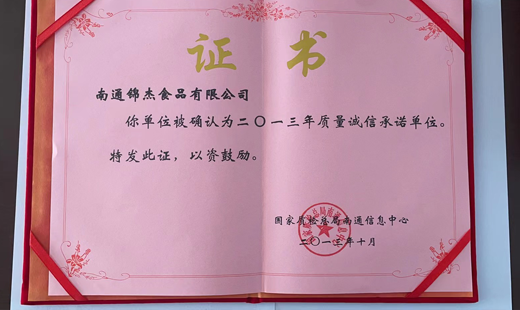 证书
南通锦杰食品有限公司
你单位被确认为二〇一三年质量诚信承诺单位。
特发此证，以资鼓励。
国家质检总局南通信息中心
二〇一三年十月